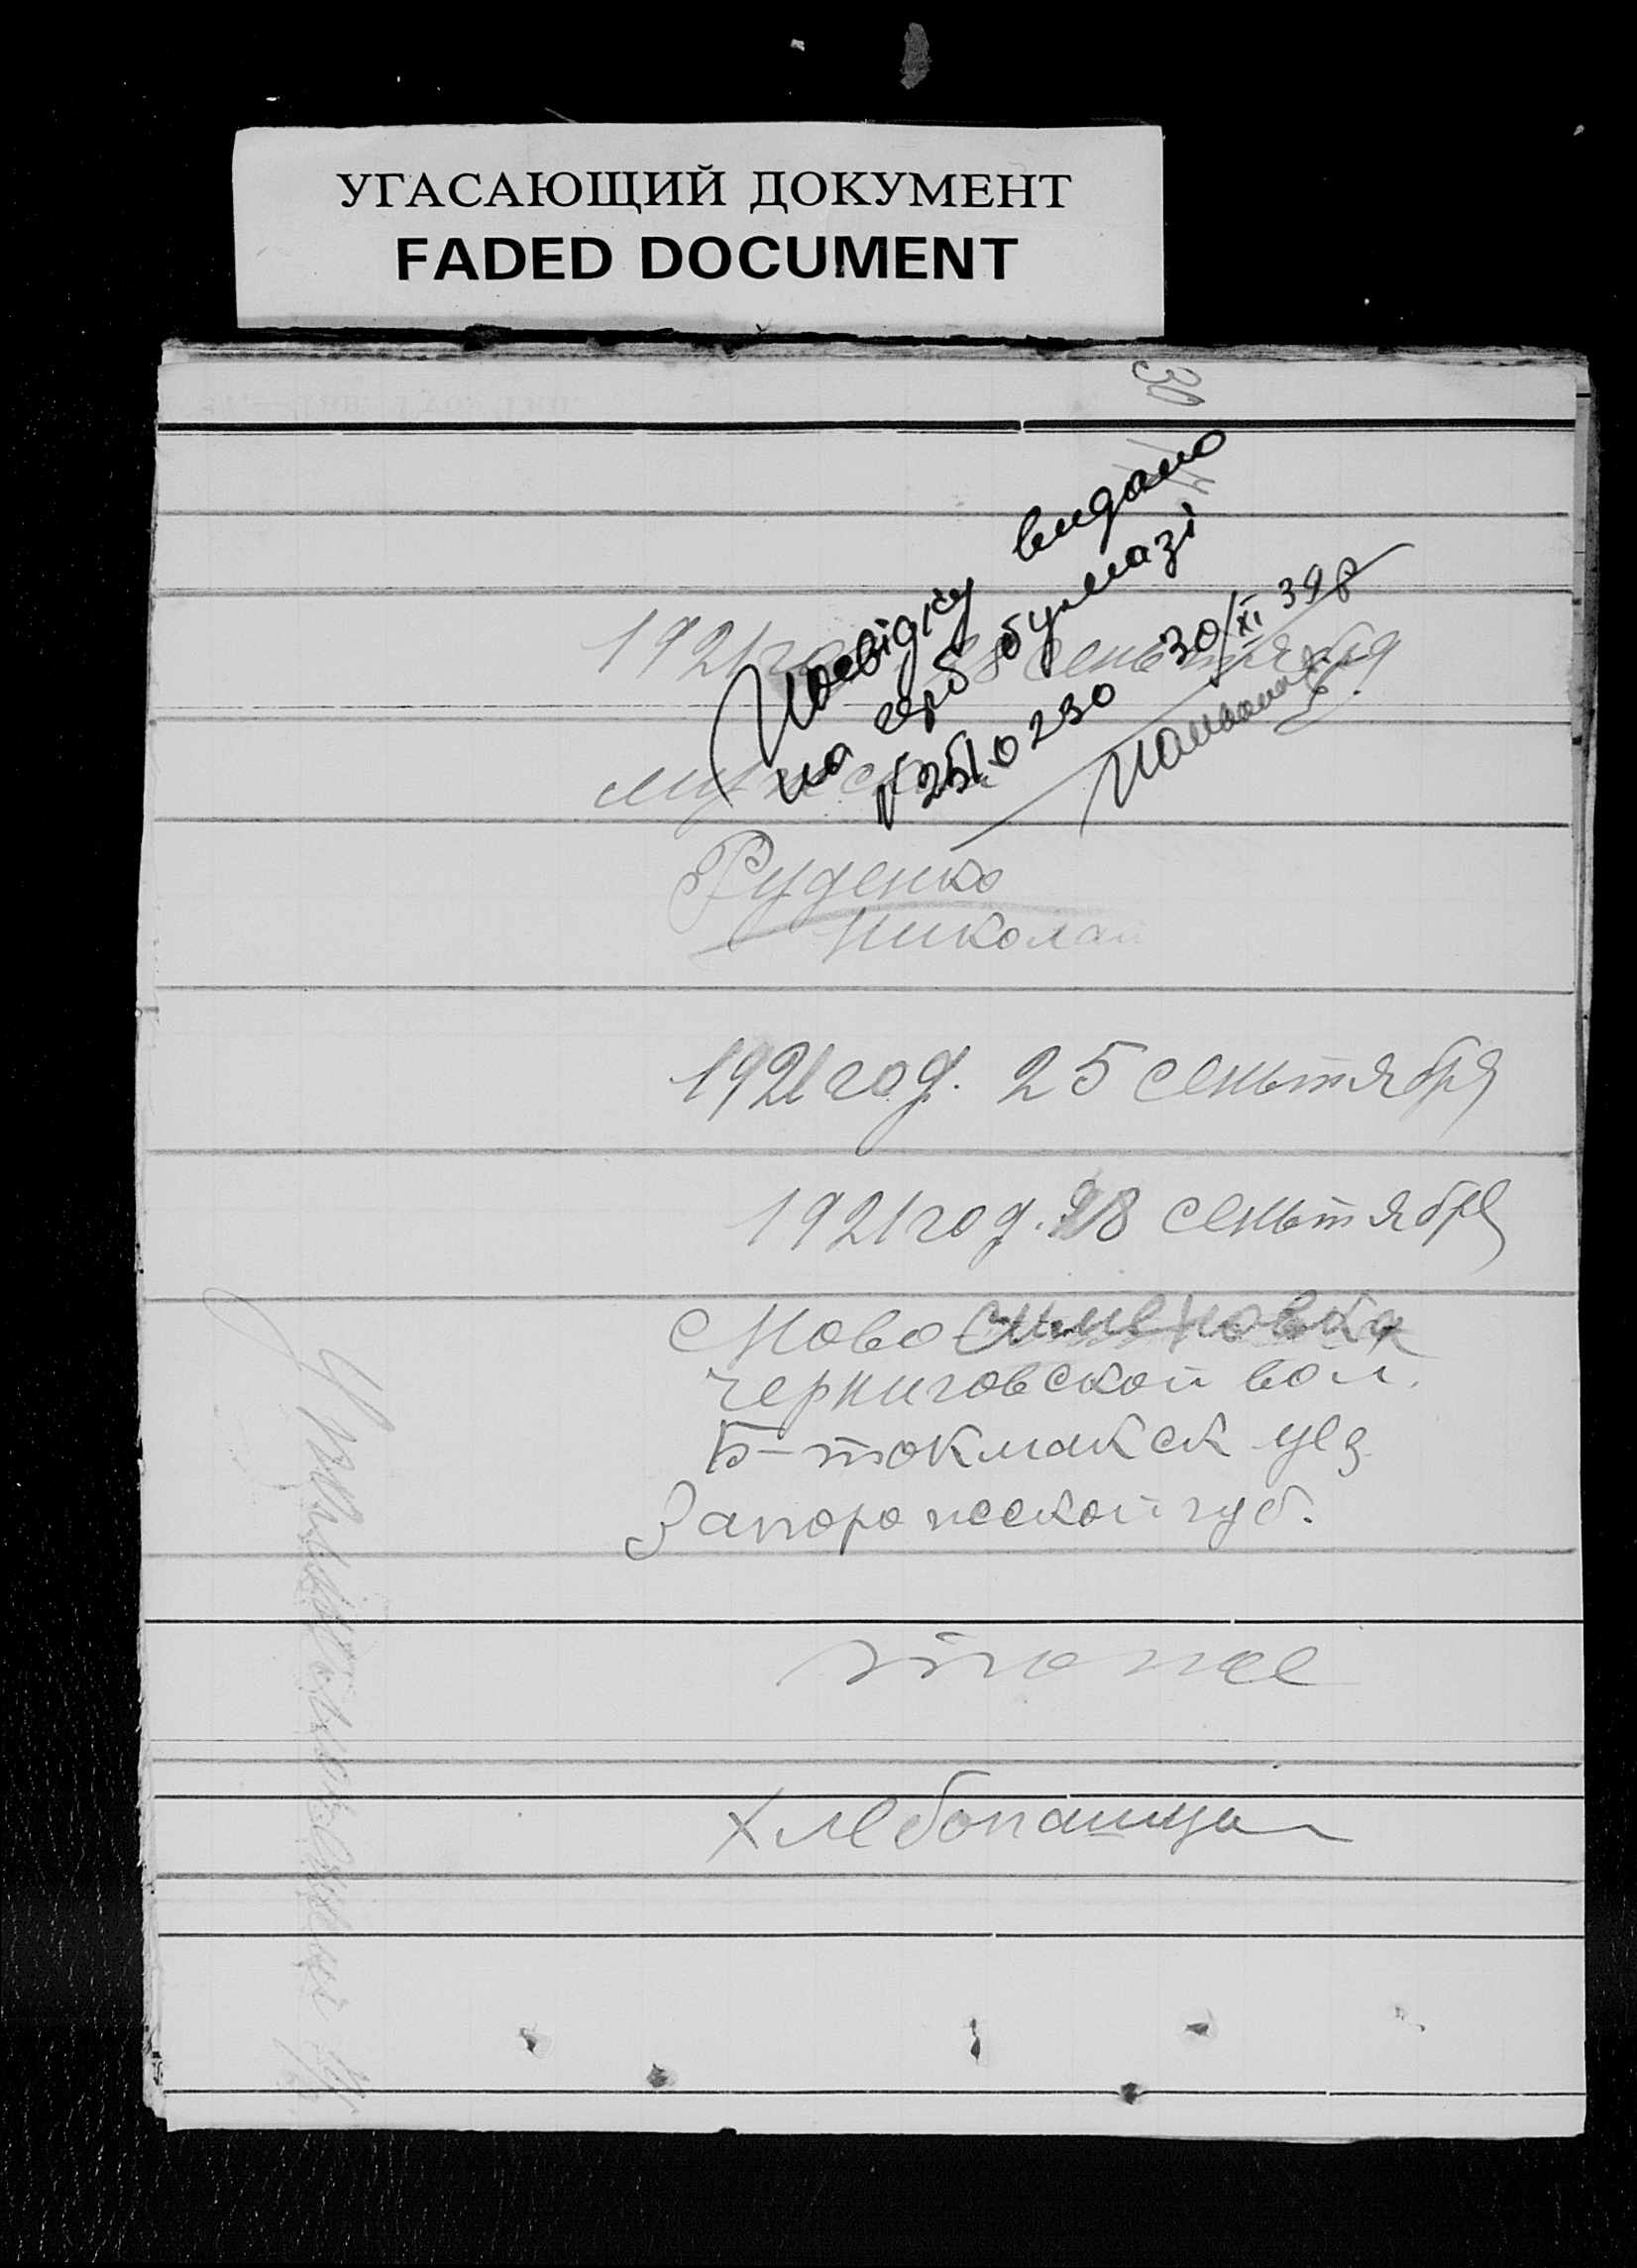 УГАСАЮЩИЙ ДОКУМЕНТ
FADED DOCUMENT
30
Посвідку видано
на герб бумазі
№ 2510230 30/XI 39р
1921 28 сеньтября
мужск
Руденко
Николай
1921 год. 25 сеньтября
1921 год. 28 сеньтября
Черниговской вол.
Б-токмакск уез
Запорожской губ.
тоже
хлебопашца